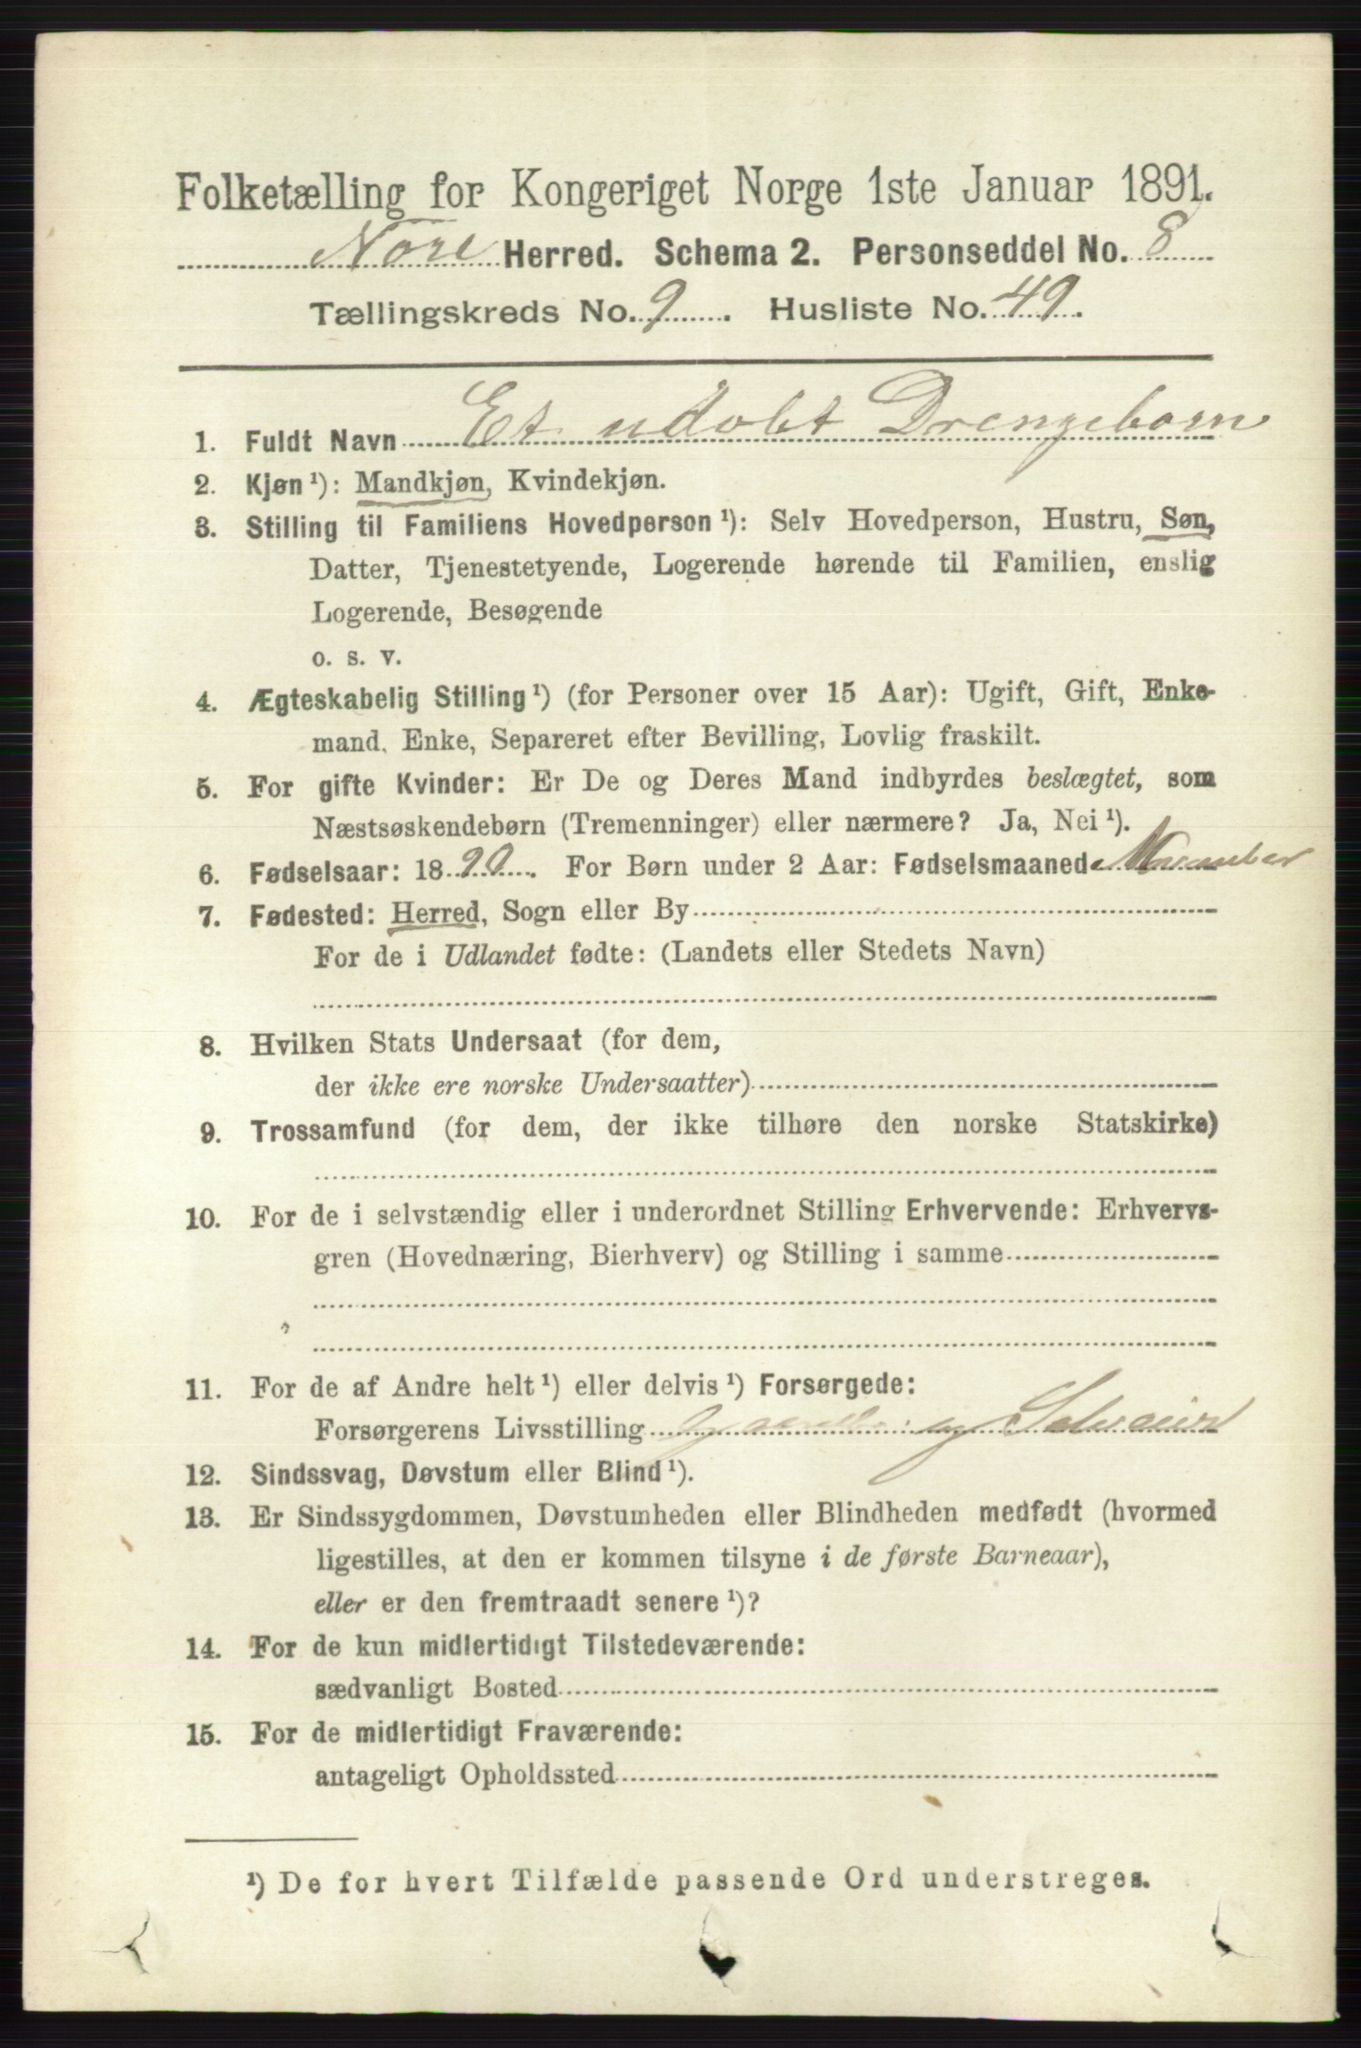 Folketælling for Kongeriget Norge 1ste Januar 1891.
Nore Herred. Schema 2. Personseddel No. 8
Tællingskreds No. 9. Husliste No. 49.
1. Fuldt Navn Et udøbt Drengebarn
2. Kjøn ¹): Mandkjøn, Kvindekjøn.
3. Stilling til Familiens Hovedperson ¹): Selv Hovedperson, Hustru, Søn,
Datter, Tjenestetyende, Logerende hørende til Familien, enslig
Logerende, Besøgende
o. s. v.
4. Ægteskabelig Stilling ¹) (for Personer over 15 Aar): Ugift, Gift, Enke-
mand, Enke, Separeret efter Bevilling, Lovlig fraskilt.
5. For gifte Kvinder: Er De og Deres Mand indbyrdes beslægtet, som
Næstsøskendebørn (Tremenninger) eller nærmere? Ja, Nei ¹).
6. Fødselsaar: 1890. For Børn under 2 Aar: Fødselsmaaned November
7. Fødested: Herred, Sogn eller By
For de i Udlandet fødte: (Landets eller Stedets Navn)
8. Hvilken Stats Undersaat (for dem,
der ikke ere norske Undersaatter)
9. Trossamfund (for dem, der ikke tilhøre den norske Statskirke)
10. For de i selvstændig eller i underordnet Stilling Erhvervende: Erhvervs-
gren (Hovednæring, Bierhverv) og Stilling i samme
11. For de af Andre helt ¹) eller delvis ¹) Forsørgede:
Forsørgerens Livsstilling og Selveier
12. Sindssvag, Døvstum eller Blind ¹).
13. Er Sindssygdommen, Døvstumheden eller Blindheden medfødt (hvormed
ligestilles, at den er kommen tilsyne i de første Barneaar),
eller er den fremtraadt senere ¹)?
14. For de kun midlertidigt Tilstedeværende:
sædvanligt Bosted
15. For de midlertidigt Fraværende:
antageligt Opholdssted
¹) De for hvert Tilfælde passende Ord understreges.